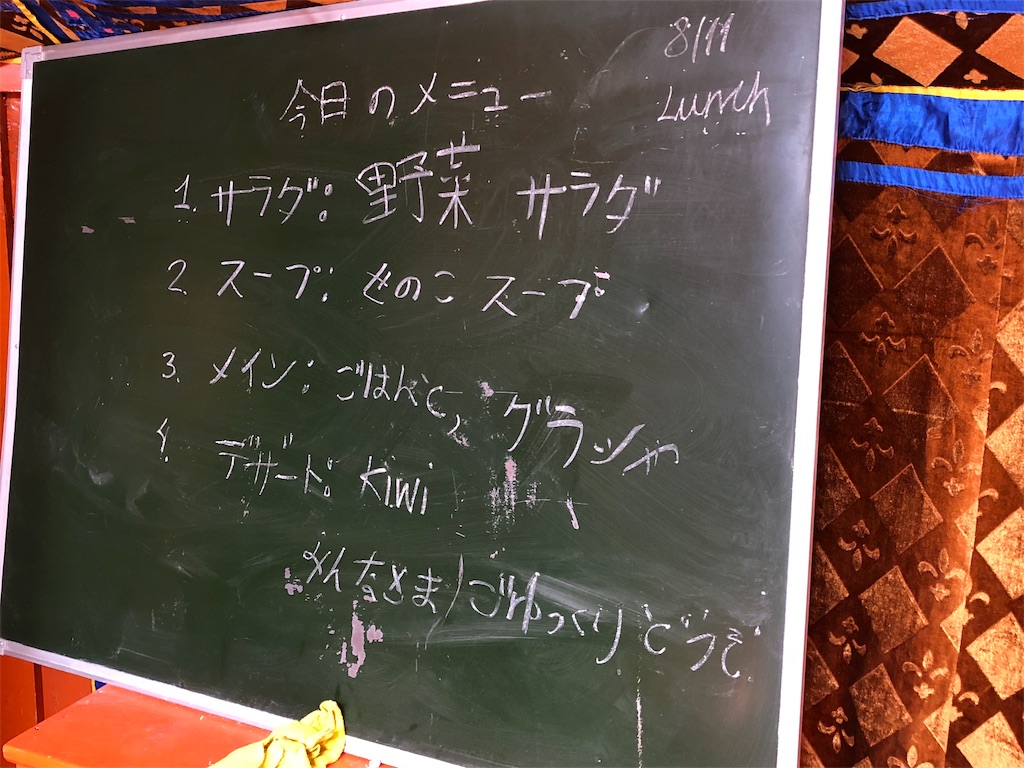 8/11
Lunch
今日のメニュー
1. サラダ: 野菜 サラダ
2. スープ: きのこ スープ
3. メイン: ごはんと, グラッシャ
4. デザート: Kiwi
みんなさま/ごゆっくりどうぞ